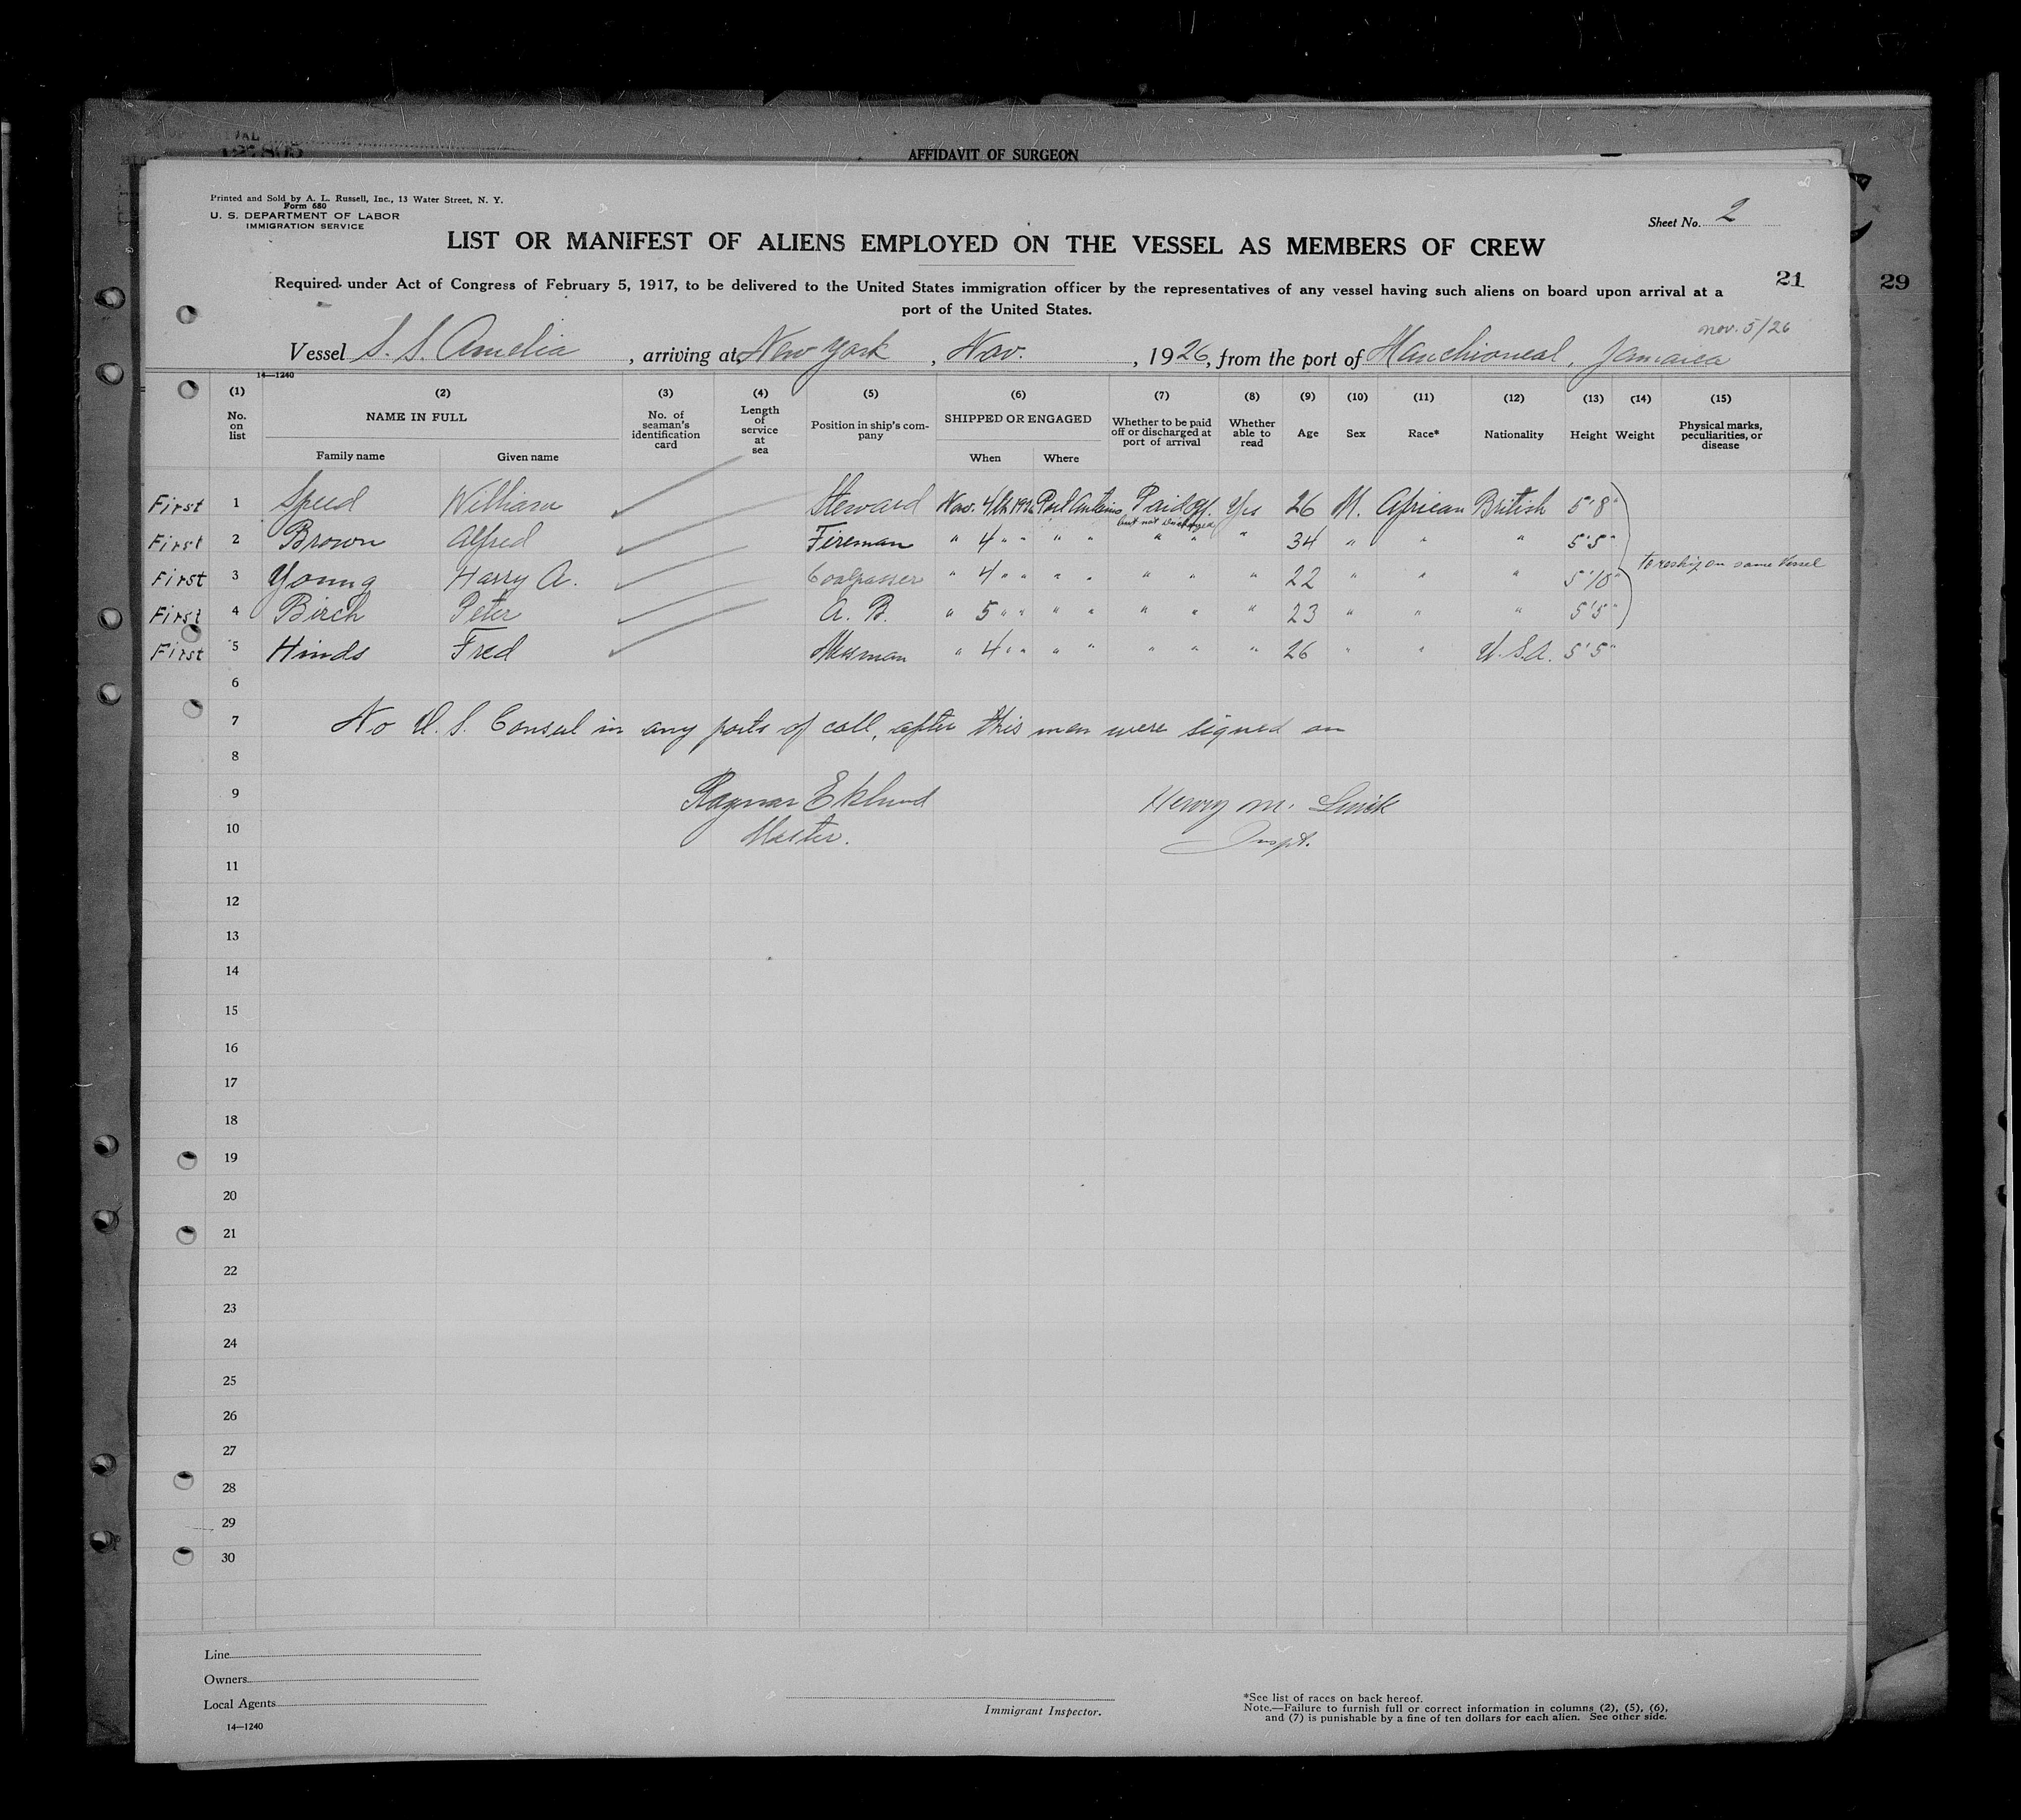 AFFIDAVIT OF SURGEON
Printed and Sold by A. L. Russell, Inc., 13 Water Street, N. Y.
Form 680
U. S. DEPARTMENT OF LABOR
IMMIGRATION SERVICE
Sheet No. 2
LIST OR MANIFEST OF ALIENS EMPLOYED ON THE VESSEL AS MEMBERS OF CREW
21
29
Required under Act of Congress of February 5, 1917, to be delivered to the United States immigration officer by the representatives of any vessel having such aliens on board upon arrival at a
port of the United States.
nov. 5/26
Vessel S. S. Amelia, arriving at New York, Nov., 1926, from the port of Manchioneal, Jamaica
14—1240
(1) (2) (3) (4) (5) (6) (7) (8) (9) (10) (11) (12) (13) (14) (15)
No. on list NAME IN FULL No. of seaman's identification card Length of service at sea Position in ship's company SHIPPED OR ENGAGED Whether to be paid off or discharged at port of arrival Whether able to read Age Sex Race* Nationality Height Weight Physical marks, peculiarities, or disease
Family name Given name When Where
First 1 Speed William Steward Nov. 4th 1926 Port Antonio Paid off. Yes 26 M. African British 5'8"
but not discharged
First 2 Brown Alfred Fireman " 4 " " " " " " " 34 " " " 5'5"
to reship on same vessel
First 3 Young Harry A. Coalpasser " 4 " " " " " " " 22 " " " 5'10"
First 4 Birch Peter A. B. " 5 " " " " " " " 23 " " " 5'5"
First 5 Hinds Fred Messman " 4 " " " " " " " 26 " " U.S.A. 5'5"
6
7 No U. S. Consul in any ports of call, after this men were signed on
8
9 Ragnar Eklund Henry M.
10 Master. Inspt.
11
12
13
14
15
16
17
18
19
20
21
22
23
24
25
26
27
28
29
30
Line
Owners
Local Agents
14—1240
Immigrant Inspector.
*See list of races on back hereof.
Note.—Failure to furnish full or correct information in columns (2), (5), (6),
and (7) is punishable by a fine of ten dollars for each alien. See other side.